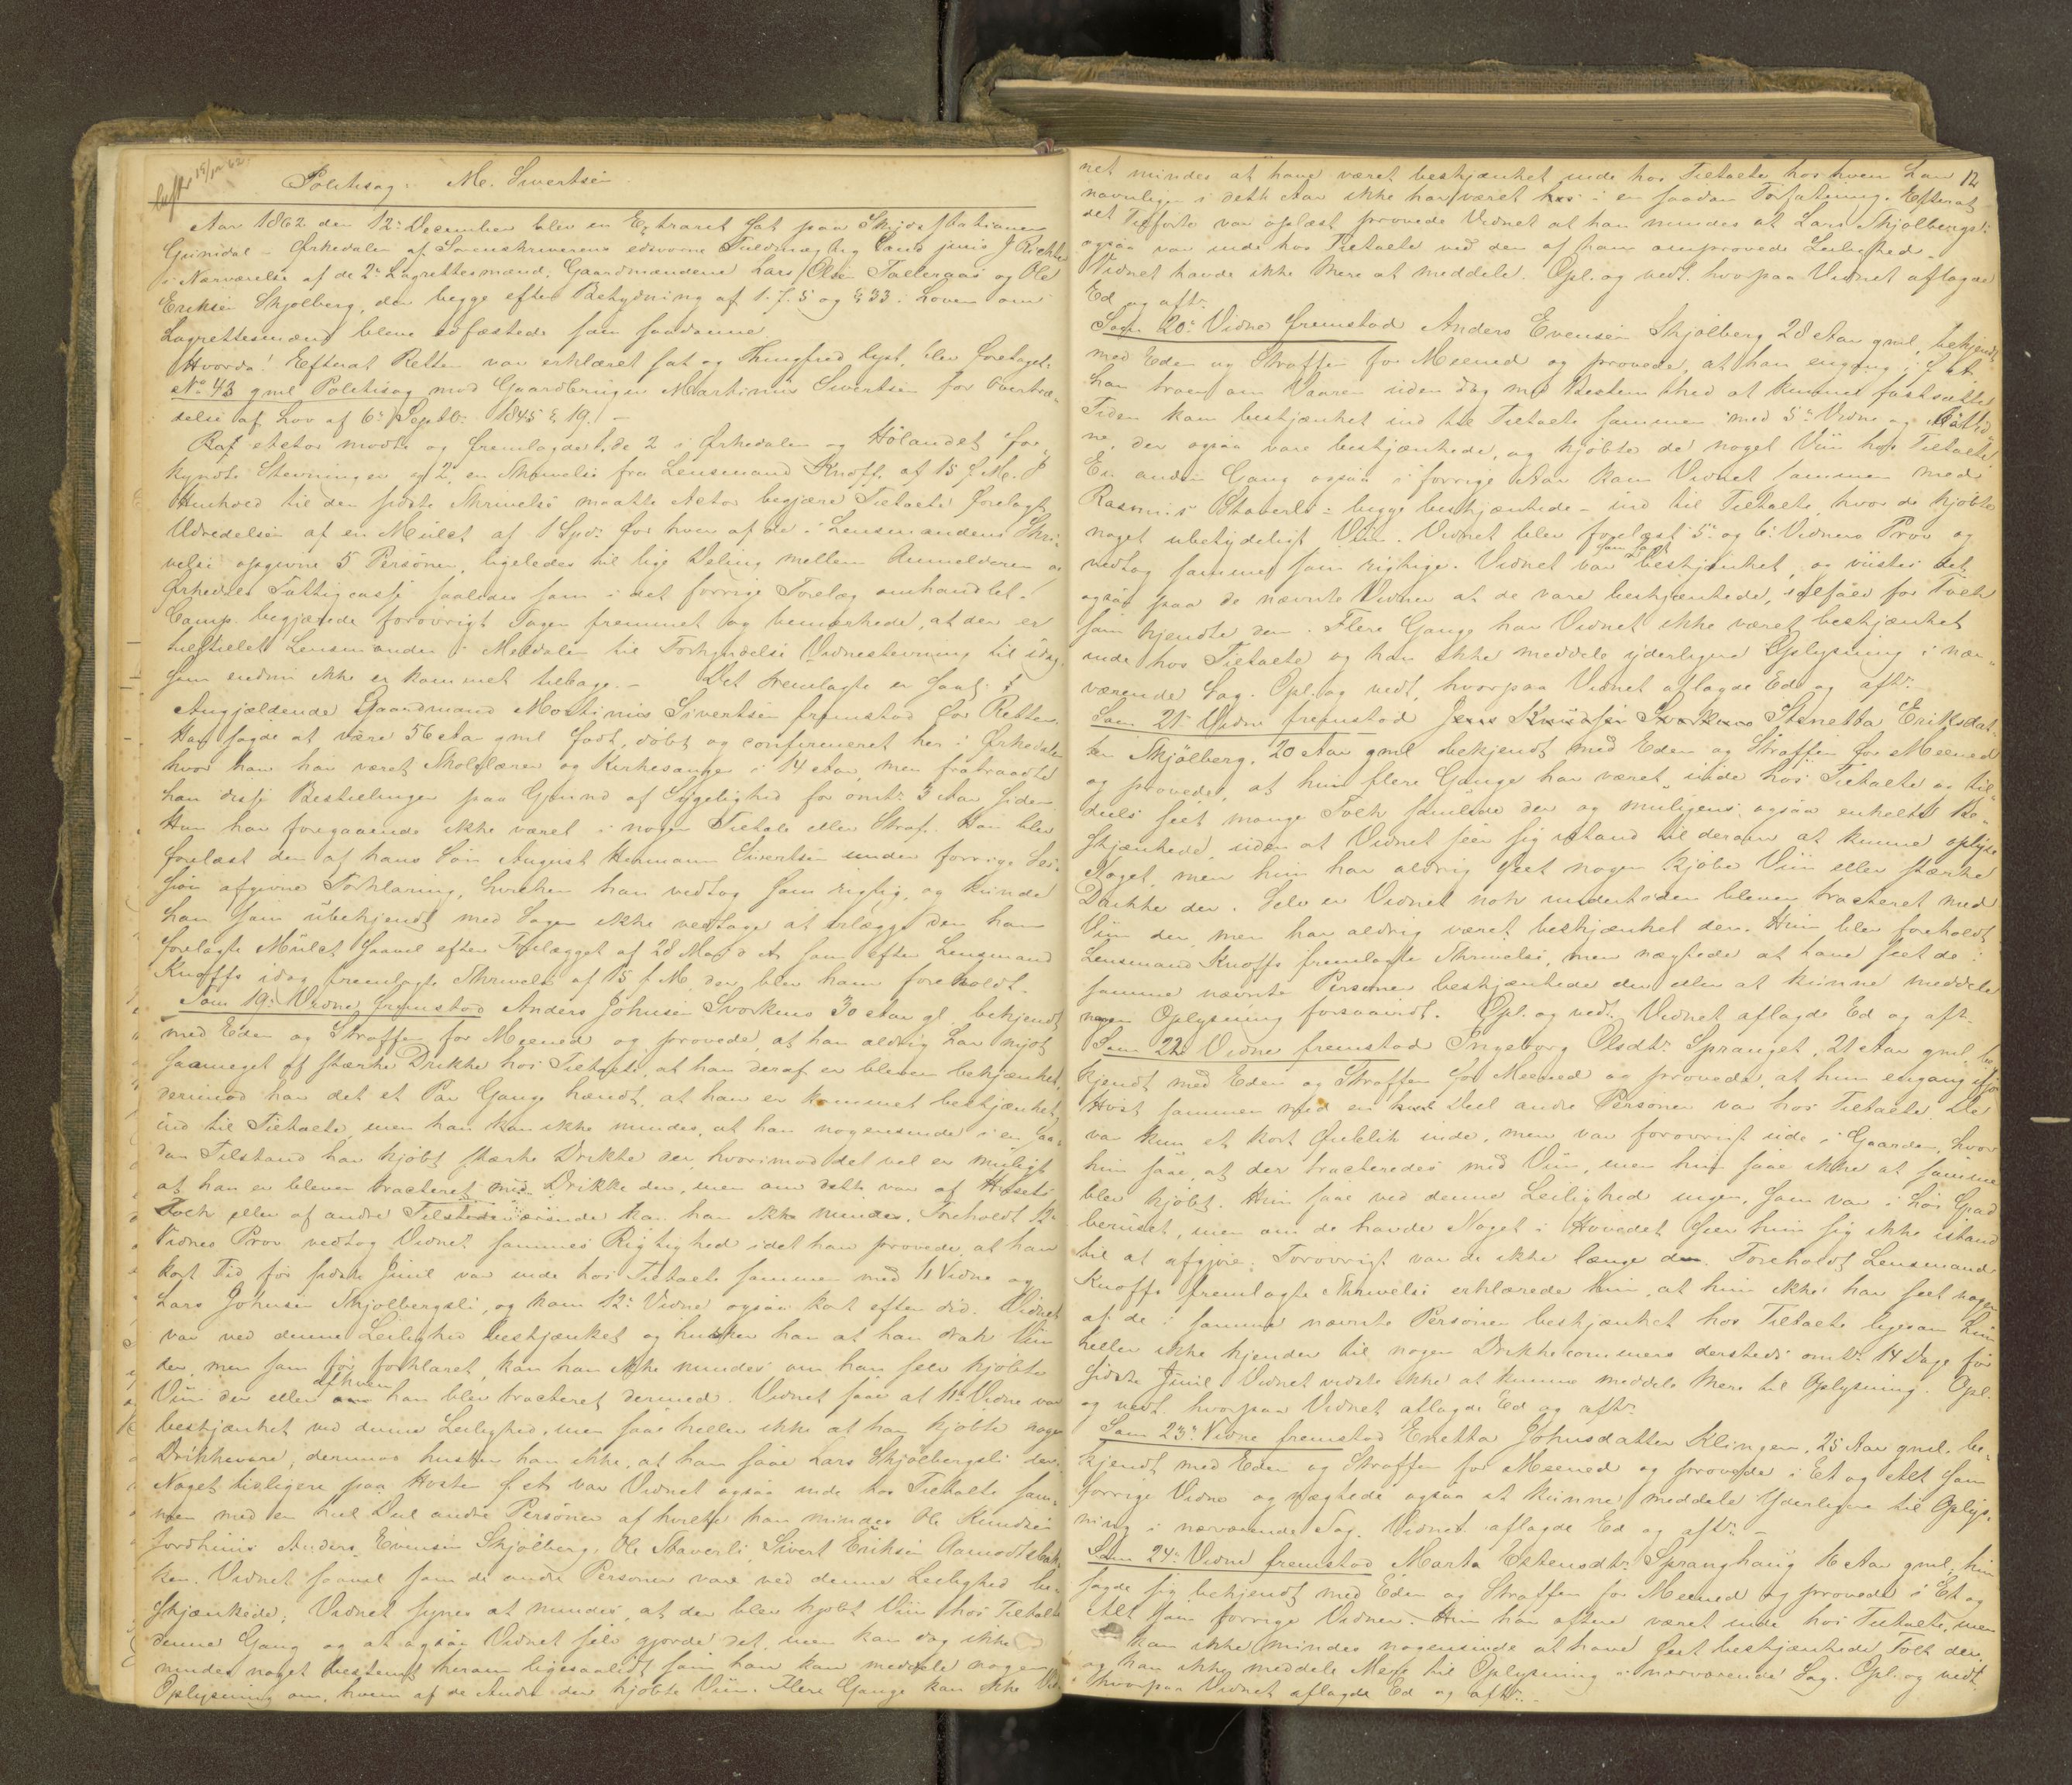 Politisag. M. Sivertsen
Aar 1862 den 12te December blev en Extraret sat paa Skydsstationen
Grimdal – Ørkedalen af Sorenskriverens edsvorne Fuldmægtig Cand. juris J. Richter
i Nærværelse af de 2de Lagrettesmænd, Gaardmændene Lars Olsen Talleraas og Ole
Eriksen Skjølberg, der begge efter Betydning af 1. 7. 5 og § 33 i Loven om
Lagrettesmænd bleve edfæstede som saadanne
Hvorda! Efterat Retten var erklæret sat og Thingfred lyst, blev foretaget:
No 43 gml Politisag mod Gaardbruger Martinus Sivertsen for Overtræ-
delse af Lov af 6te Septbr 1845 § 19. –
Ref. Actor mødte og fremlagde 1, de 2 i Ørkedalen og Hølandet for-
kyndte Stevninger og 2, en Skrivelse fra Lensmand Knoff af 15 f. M. I
Henhold til den sidste Skrivelse maatte Actor begjære Tiltalte forelagt
Udredelsen af en Mulct af 1 Spd. for hver af de i Lensmandens Skri-
velse opgivne 5 Personer, ligeledes til lige Deling mellem Anmelderen og
Ørkedals Fattigcasse saaledes som i det forrige Forelæg omhandlet.
Comp. begjærede forøvrigt Sagen fremmet og bemærkede, at der er
tilstillet Lensmanden i Meldalen til Forkyndelse Vidnestevning til idag,
som endnu ikke er kommet tilbage. – Det Fremlagte er saal:
Angjældende Gaardmand Martinus Sivertsen fremstod for Retten.
Han sagde at være 56 Aar gml født, døbt og confirmeret her i Ørkedalen
hvor han har været Skolelærer og Kirkesanger i 14 Aar, men fratraadte
han disse Bestillinger paa Grund af Sygelighed for omtr 3 Aar siden
Han har foregaaende ikke været i nogen Tiltale eller Straf. Han blev
forelæst den af hans Søn August Hermann Sivertsen under forrige Ses-
sion afgivne Forklaring, hvilken han vedtog som rigtig, og kunde
han som ubekjendt med Sagen ikke vedtage at erlægge den ham
forelagte Mulct saavel efter Forelægget af 28 Mai d. A. som efter Lensmand
Knoffs idag fremlagte Skrivelse af 15 f. M. der blev ham foreholdt.
Som 19de Vidne fremstod Anders Johnsen Svorkmo 30 Aar gl. bekjendt
med Eden og Straffen for Meened og provede at han aldrig har nydt
saameget af stærke Drikke hos Tiltalte, at han deraf er bleven beskjænket,
derimod har det et Par Gange hændt, at han er kommet beskjænket
ind til Tiltalte, men han kan ikke mindes, at han nogensinde i en saa-
dan Tilstand har kjøbt stærke Drikke der, hvorimod det vel er muligt
at han er bleven tracteret med Drikke der, men om dette var af Husets
Folk eller af andre Tilstedeværende kan han ikke mindes. Foreholdt 12te
Vidnes Prov vedtog Vidnet sammes Rigtighed idet han provede, at han
kort Tid før sidste Juul var inde hos Tiltalte sammen med 11 Vidne og
Lars Johnsen Skjølbergsli, og kom 12te Vidne ogsaa kort efter did. Vidnet
var ved denne Leilighed beskjænket og husker han at han drak Viin
der, men som før forklaret, kan han ikke mindes om han selv kjøbte
Viin der eller af hvem han blev tracteret dermed. Vidnet saae at 11te Vidne var
beskjænket ved denne Leilighed, men saae heller ikke at han kjøbte nogen
Drikkevare, derimod husker han ikke, at han saae Lars Skjølbergsli der.
Noget tidligere paa Høsten f. A. var Vidnet ogsaa inde hos Tiltalte sam-
men med en heel Deel andre Personer af hvilke han mindes Ole Knudsen
Jordhuus Anders Evensen Skjølberg, Ole Staverli, Sivert Eriksen Aamodtsbak-
ken. Vidnet saavel som de andre Personer vare ved denne Leilighed be-
skjænkede; Vidnet synes at mindes, at der blev kjøbt Viin hos Tiltalte
denne Gang og at ogsaa Vidnet selv gjorde det, men kan dog ikke
mindes noget bestemt herom ligesaalidt som han kan meddele nogen
Oplysning om, hvem af de Andre der kjøbte Viin. Flere Gange kan ikke Vid-
12
net mindes at have været beskjænket inde hos Tiltalte hos hvem han
navnligen i dette Aar ikke har været i en saadan Forfatning. Efterat
det Tilførte var oplæst provede Vidnet at han mindes at Lars Skjølbergsli
ogsaa var inde hos Tiltalte ved den af ham omprovede Leilighed.
Vidnet havde ikke Mere at meddele. Opl. og vedt. hvorpaa Vidnet aflagde
Ed og aftr.
Som 20de Vidne fremstod Anders Evensen Skjølberg 28 Aar gml, bekjendt
med Eden og Straffen for Meened og provede, at han engang i f. A.
han troer om Vaaren uden dog med Bestemthed at kunne fastsætte
Tiden kom beskjænket ind til Tiltalte sammen med 5te Vidne og 6te Vid-
ne, der ogsaa vare beskjænkede, og kjøbte de noget Viin hos Tiltalte
En anden Gang ogsaa i forrige Aar kom Vidnet sammen med
Rasmus Staverli – begge beskjænkede – ind til Tiltalte, hvor de kjøbte
noget ubetydeligt Viin. Vidnet blev forelæst 5te og 6te Vidners Prov og
vedtog samme som rigtige. Vidnet var som sagt beskjænket, og viistes det
ogsaa paa de nævnte Vidner at de vare beskjænkede, idetfald for Folk
som kjendte dem. Flere Gange har Vidnet ikke været beskjænket
inde hos Tiltalte og kan ikke meddele yderligere Oplysning i nær-
værende Sag. Opl. og vedt. hvorpaa Vidnet aflagde Ed og aftr.
Som 21de Vidne fremstod Jens Knudsen Svorkmo Stenetta Eriksdat-
ter Skjølberg, 20 Aar gml bekjendt med Eden og Straffen for Meened
og provede, at hun flere Gange har været inde hos Tiltalte og til-
deels seet mange Folk samlede der og muligens ogsaa enkelte be-
skjænkede, uden at Vidnet seer sig istand til derom at kunne oplyse
Noget, men hun har aldrig seet nogen kjøbe Viin eller stærke
Drikke der. Selv er Vidnet nok undertiden bleven tracteret med
Viin der, men har aldrig været beskjænket der. Hun blev foreholdt
Lensmand Knoffs fremlagte Skrivelse, men nægtede at have seet de i
samme nævnte Personer beskjænkede der eller at kunne meddele
nogen Oplysning forsaavidt. Opl. og vedt. Vidnet aflagde Ed og aftr.
Som 22de Vidne fremstod Ingeborg Olsdtr Spranget, 21 Aar gml, be-
kjendt med Eden og Straffen for Meened og provede, at hun engang ifjor
Høst sammen med en heel Deel andre Personer var hos Tiltalte. De
var kun et kort Øieblik inde, men var forøvrigt ude i Gaarden, hvor
hun saae, at der tracteredes med Viin, men hun saae ikke at samme
blev kjøbt. Hun saae ved denne Leilighed ingen, som var i høi Grad
beruset, men om de havde Noget i Hovedet seer hun sig ikke istand
til at afgjøre; Forøvrigt var de ikke længe der. Foreholdt Lensmand
Knoffs fremlagte Skrivelse erklærede hun, at hun ikke har seet nogen
af de i samme nævnte Personer beskjænket hos Tiltalte ligesom hun
heller ikke kjender til nogen Drikkecommers dersteds omtr 14 Dage før
sidste Juul. Vidnet vidste ikke at kunne meddele Mere til Oplysning. Opl.
og vedt. hvorpaa Vidnet aflagde Ed og aftr.
Som 23de Vidne fremstod Enetta Johnsdatter Klingen, 25 Aar gml. be-
kjendt med Eden og Straffen for Meened og provede i Et og Alt som
forrige Vidne og nægtede ogsaa at kunne meddele Yderligere til Oplys-
ning i nærværende Sag. Vidnet aflagde Ed og aftr. –
Som 24de Vidne fremstod Marta Estensdtr Spranghaug 16 Aar gml, hun
sagde sig bekjendt med Eden og Straffen for Meened og provede i Et og
Alt som forrige Vidner. Hun har oftere været inde hos Tiltalte, men
kan ikke mindes nogensinde at have seet beskjænkede Folk der,
og kan ikke meddele Mere til Oplysning i nærværende Sag. Opl. og vedt.
hvorpaa Vidnet aflagde Ed og aftr. –